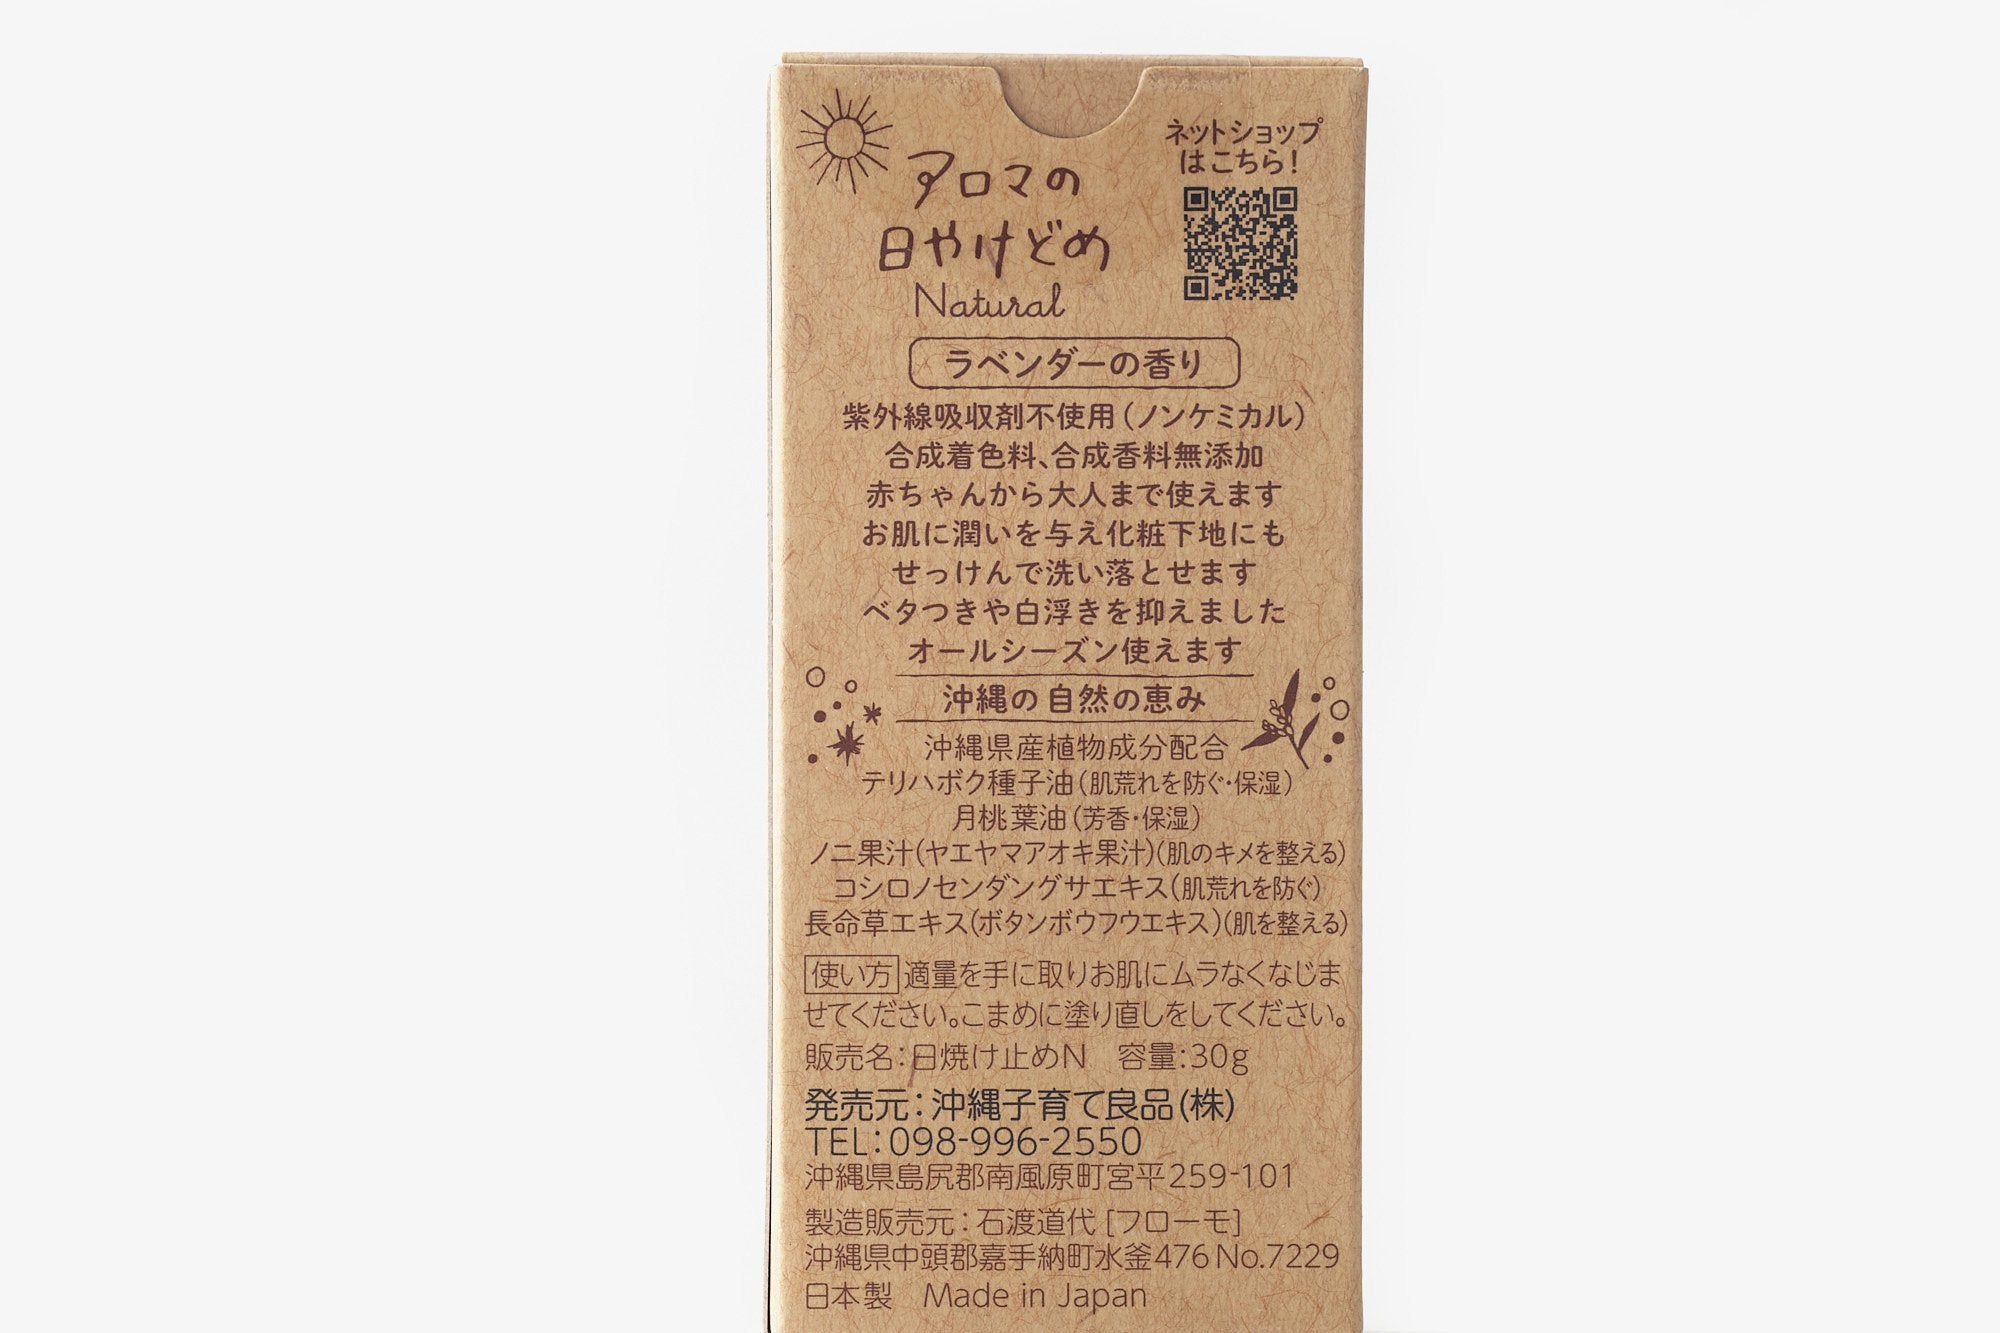 ネットショップ
はこちら!
アロマの
日やけどめ
Natural
ラベンダーの香り
紫外線吸収剤不使用(ノンケミカル)
合成着色料、合成香料無添加
赤ちゃんから大人まで使えます
お肌に潤いを与え化粧下地にも
せっけんで洗い落とせます
ベタつきや白浮きを抑えました
オールシーズン使えます
沖縄の自然の恵み
沖縄県産植物成分配合
テリハボク種子油(肌荒れを防ぐ・保湿)
月桃葉油(芳香・保湿)
ノニ果汁(ヤエヤマアオキ果汁)(肌のキメを整える)
コシロノセンダングサエキス(肌荒れを防ぐ)
長命草エキス(ボタンボウフウエキス)(肌を整える)
使い方 適量を手に取りお肌にムラなくなじま
せてください。こまめに塗り直しをしてください。
販売名:日焼け止めN 容量:30g
発売元:沖縄子育て良品(株)
TEL:098-996-2550
沖縄県島尻郡南風原町宮平259-101
製造販売元:石渡道代[フローモ]
沖縄県中頭郡嘉手納町水釜476 No.7229
日本製 Made in Japan